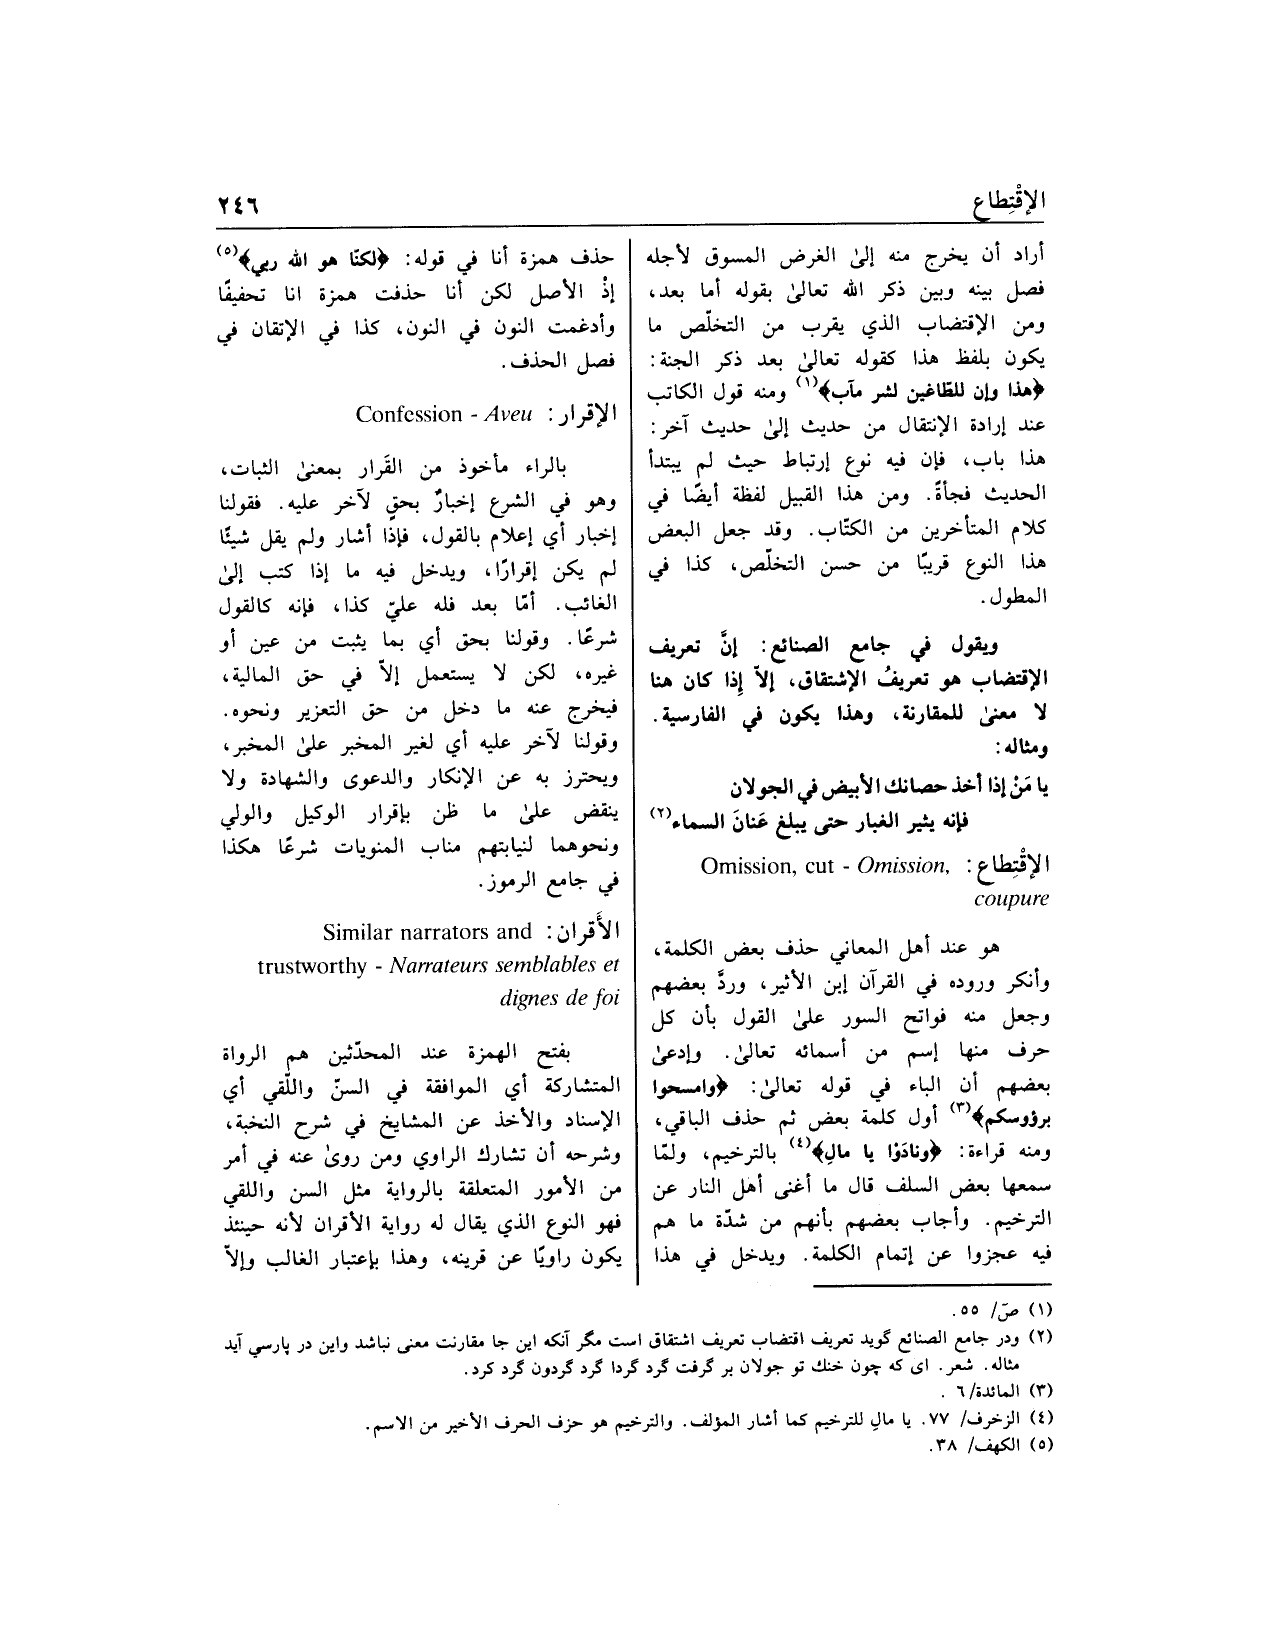 الإقْتِطاع
٢٤٦
أراد أن يخرج منه إلىٰ الغرض المسوق لأجله
فصل بينه وبين ذكر الله تعالىٰ بقوله أما بعد،
ومن الإقتضاب الذي يقرب من التخلّص ما
يكون بلفظ هذا كقوله تعالىٰ بعد ذكر الجنة:
﴿هذا وإن للطّاغين لشر مآب﴾(١) ومنه قول الكاتب
عند إرادة الإنتقال من حديث إلىٰ حديث آخر:
هذا باب، فإن فيه نوع إرتباط حيث لم يبتدأ
الحديث فجأةً. ومن هذا القبيل لفظة أيضًا في
كلام المتأخرين من الكتّاب. وقد جعل البعض
هذا النوع قريبًا من حسن التخلّص، كذا في
المطول.
ويقول في جامع الصنائع: إنَّ تعريف
الإقتضاب هو تعريفُ الإشتقاق، إلاّ إذا كان هنا
لا معنىٰ للمقارنة، وهذا يكون في الفارسية.
ومثاله:
يا مَنْ إذا أخذ حصانك الأبيض في الجولان
فإنه يثير الغبار حتى يبلغ عَنانَ السماء(٢)
الإقْتِطاع: Omission, cut - Omission,
coupure
هو عند أهل المعاني حذف بعض الكلمة،
وأنكر وروده في القرآن إبن الأثير، وردَّ بعضهم
وجعل منه فواتح السور علىٰ القول بأن كل
حرف منها إسم من أسمائه تعالىٰ. وإدعىٰ
بعضهم أن الباء في قوله تعالىٰ: ﴿وامسحوا
برؤوسكم﴾(٣) أول كلمة بعض ثم حذف الباقي،
ومنه قراءة: ﴿ونادَوْا يا مالِ﴾(٤) بالترخيم، ولمّا
سمعها بعض السلف قال ما أغنى أهل النار عن
الترخيم. وأجاب بعضهم بأنهم من شدّة ما هم
فيه عجزوا عن إتمام الكلمة. ويدخل في هذا
حذف همزة أنا في قوله: ﴿لكنّا هو الله ربي﴾(٥)
إذْ الأصل لكن أنا حذفت همزة انا تخفيفًا
وأدغمت النون في النون، كذا في الإتقان في
فصل الحذف.
الإقرار: Confession - Aveu
بالراء مأخوذ من القَرار بمعنىٰ الثبات،
وهو في الشرع إخبارٌ بحقٍ لآخر عليه. فقولنا
إخبار أي إعلام بالقول، فإذا أشار ولم يقل شيئًا
لم يكن إقرارًا، ويدخل فيه ما إذا كتب إلىٰ
الغائب. أمّا بعد فله عليّ كذا، فإنه كالقول
شرعًا. وقولنا بحق أي بما يثبت من عين أو
غيره، لكن لا يستعمل إلاّ في حق المالية،
فيخرج عنه ما دخل من حق التعزير ونحوه.
وقولنا لآخر عليه أي لغير المخبر علىٰ المخبر،
ويحترز به عن الإنكار والدعوى والشهادة ولا
ينقض علىٰ ما ظن بإقرار الوكيل والولي
ونحوهما لنيابتهم مناب المنوبات شرعًا هكذا
في جامع الرموز.
الأَقران: Similar narrators and
trustworthy - Narrateurs semblables et
dignes de foi
بفتح الهمزة عند المحدّثين هم الرواة
المتشاركة أي الموافقة في السنّ واللّقي أي
الإسناد والأخذ عن المشايخ في شرح النخبة،
وشرحه أن تشارك الراوي ومن روىٰ عنه في أمر
من الأمور المتعلقة بالرواية مثل السن واللقي
فهو النوع الذي يقال له رواية الأقران لأنه حينئذ
يكون راويًا عن قرينه، وهذا بإعتبار الغالب وإلاّ
(١) صّ/ ٥٥.
(٢) ودر جامع الصنائع گويد تعريف اقتضاب تعريف اشتقاق است مگر آنكه اين جا مقارنت معنى نباشد واين در پارسي آيد
مثاله. شعر. اى كه چون خنك تو جولان بر گرفت گرد گردا گرد گردون گرد كرد.
(٣) المائدة/ ٦ .
(٤) الزخرف/ ٧٧. يا مالِ للترخيم كما أشار المؤلف. والترخيم هو حزف الحرف الأخير من الاسم.
(٥) الكهف/ ٣٨.